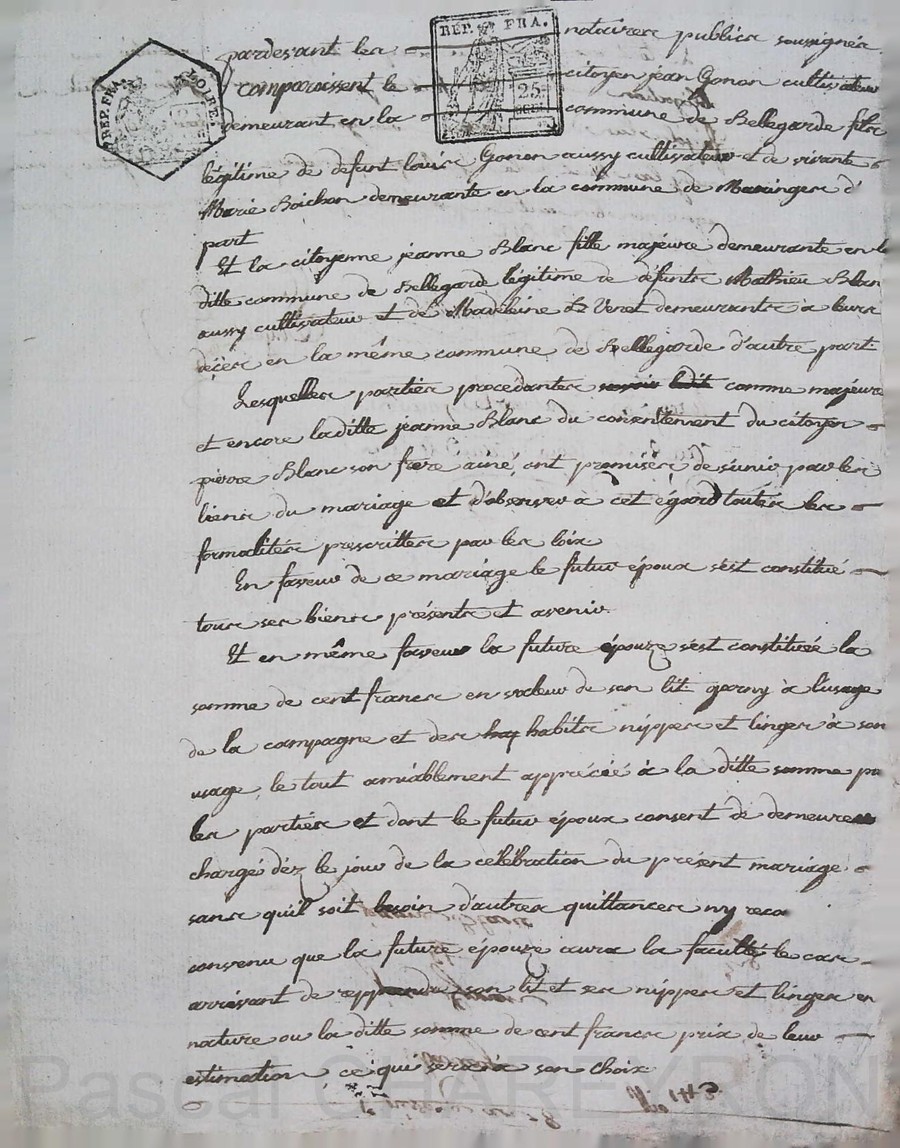 REP. FRA.
LOIRE.
REP. FRA.
25
CENT.
pardevant les notaires publics soussignés
comparoissent le citoyen jean Gonon cultivateur
demeurant en la commune de Bellegarde fils
légitime de defunt louis Gonon aussy cultivateur et de vivante
Marie Boichon demeurante en la commune de Maringes d'
part
Et la citoyenne jeanne Blanc fille majeure demeurante en la
ditte commune de Bellegarde légitime de défunts Mathieu Blan
aussy cultivateur et de Madeleine Le Venet demeurants à leurs
décès en la même commune de Bellegarde d'autre part
Lesquelles parties procedantes comme majeure
et encore laditte jeanne Blanc du consentement du citoyen
pierre Blanc son frere ainé, ont promises de s'unir par les
liens du mariage et d'observer a cet égard toutes les
formalités prescrittes par les loix
En faveur de ce mariage le futur époux s'est constitué
tous ses biens présents et avenir
Et en même faveur la future épouze s'est constituée la
somme de cent francs en valeur de son lit garny à l'usage
de la campagne et des habits nippes et linges à son
usage, le tout amiablement apprécié à la ditte somme pa
les parties et dont le futur époux consent de demeurer
chargé dèz le jour de la célébration du présent mariage
sans quil soit besoin d'autres quittances ny reco
convenu que la future épouze aura la faculté le cas
arrivant de reprendre son lit et ses nippes et linges en
nature ou la ditte somme de cent francs prix de leur
estimation ce qui sera à son choix
Pascal CHAREYRON